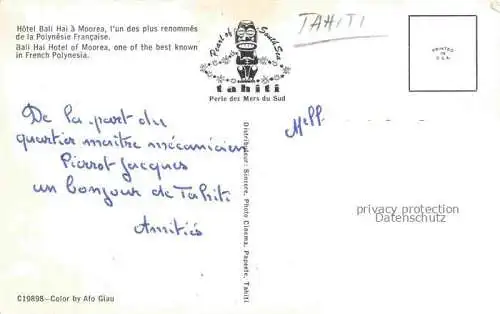 Hôtel Bali Hai à Moorea, l'un des plus renommés
de la Polynésie Française.
Bali Hai Hotel of Moorea, one of the best known
in French Polynesia.
TAHITI
Pearl of South Sea
tahiti
Perle des Mers du Sud
PRINTED
IN
U.S.A.
De la part du
quartier maître mécanicien
Pierrot Jacques
un bonjour de Tahiti
Amitiés
Distributeur: Sincere, Photo Cinema, Papeete, Tahiti
Mell
privacy protection
Datenschutz
C19898—Color by Afo Giau